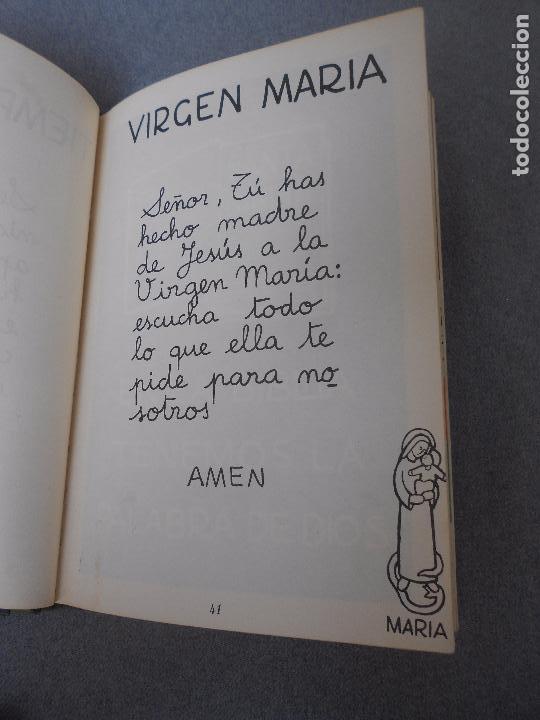 VIRGEN MARIA
Señor, Tú has
hecho madre
de Jesús a la
Virgen María:
escucha todo
lo que ella te
pide para no
sotros
AMEN
MARIA
41
TENEMOS LA
PALABRA DE DIOS
TIEMP
todocoleccion